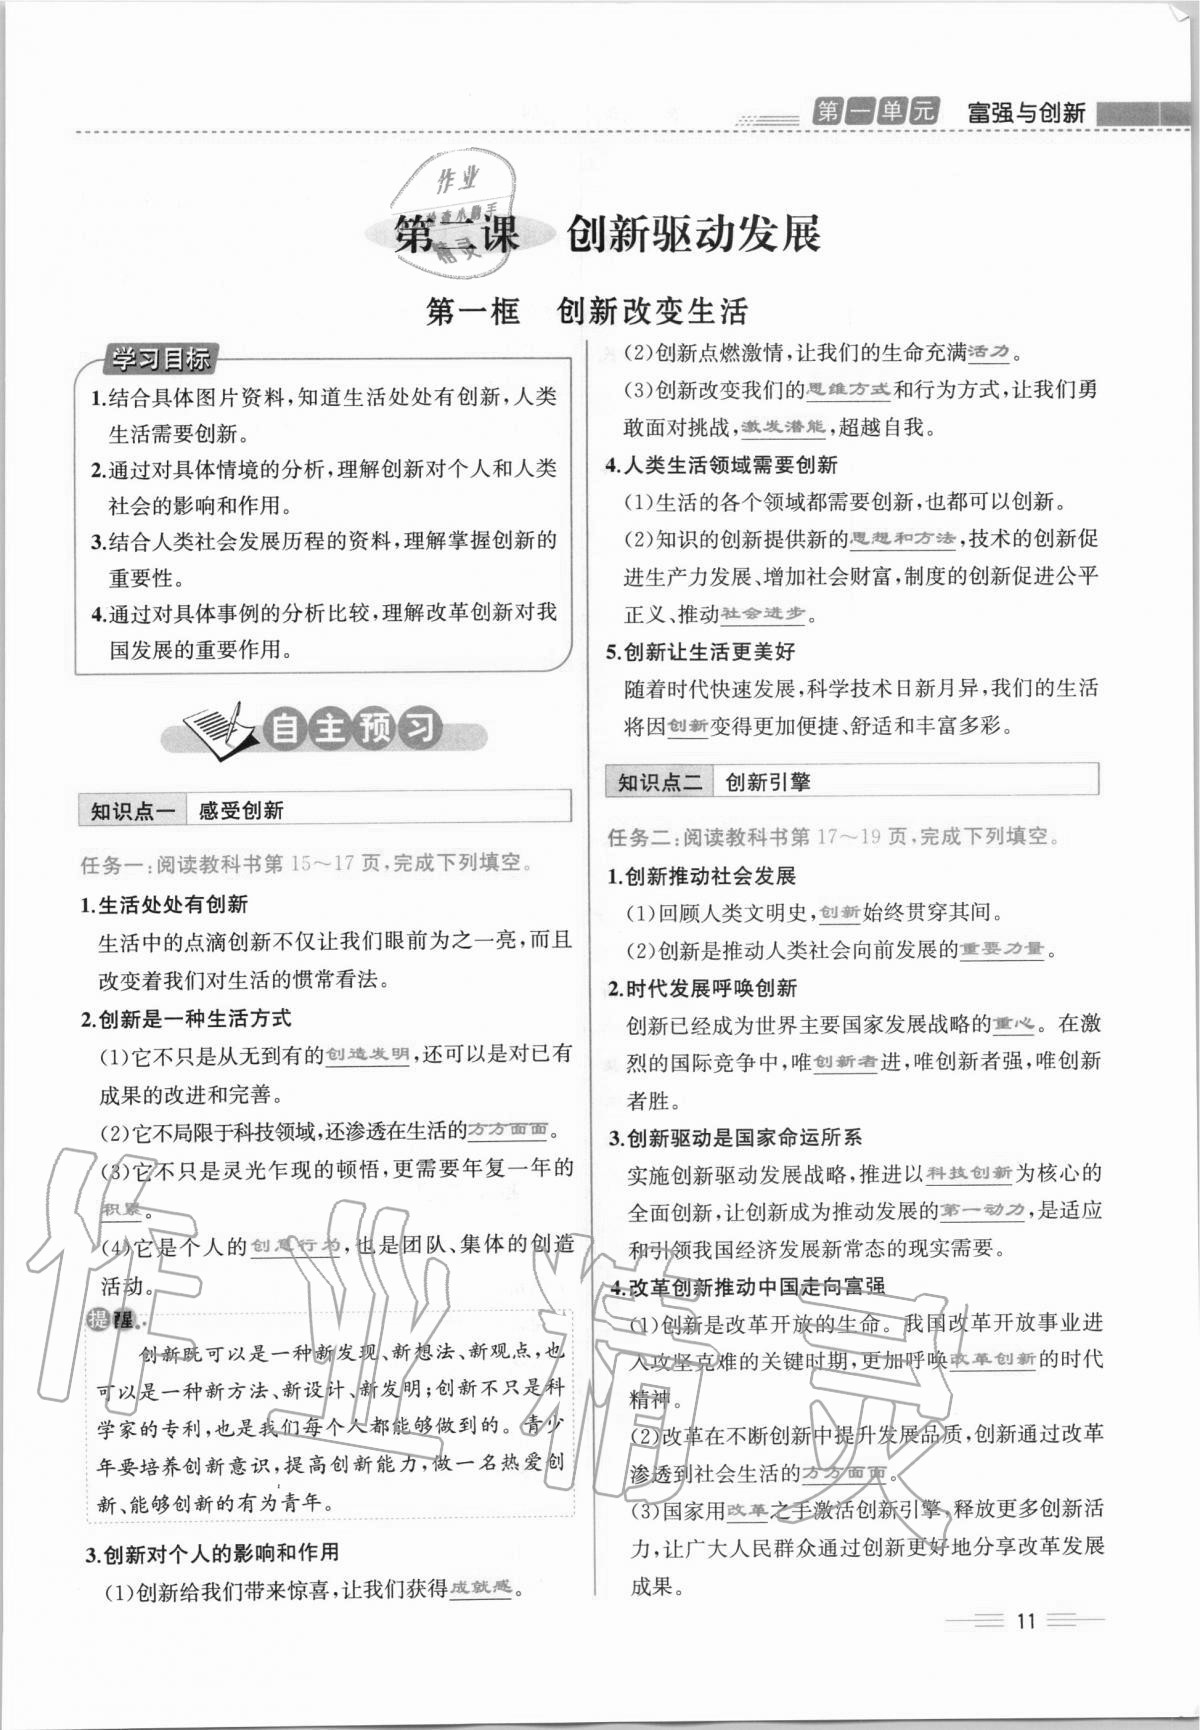 第一单元 富强与创新
第二课 创新驱动发展
作业
检查小助手
精灵
第一框 创新改变生活
学习目标
1.结合具体图片资料,知道生活处处有创新,人类
生活需要创新。
2.通过对具体情境的分析,理解创新对个人和人类
社会的影响和作用。
3.结合人类社会发展历程的资料,理解掌握创新的
重要性。
4.通过对具体事例的分析比较,理解改革创新对我
国发展的重要作用。
自主预习
知识点一 感受创新
任务一:阅读教科书第15~17页,完成下列填空。
1.生活处处有创新
生活中的点滴创新不仅让我们眼前为之一亮,而且
改变着我们对生活的惯常看法。
2.创新是一种生活方式
(1)它不只是从无到有的创造发明,还可以是对已有
成果的改进和完善。
(2)它不局限于科技领域,还渗透在生活的方方面面。
(3)它不只是灵光乍现的顿悟,更需要年复一年的
积累。
(4)它是个人的创意行为,也是团队、集体的创造
活动。
提醒
创新既可以是一种新发现、新想法、新观点,也
可以是一种新方法、新设计、新发明;创新不只是科
学家的专利,也是我们每个人都能够做到的。青少
年要培养创新意识,提高创新能力,做一名热爱创
新、能够创新的有为青年。
3.创新对个人的影响和作用
(1)创新给我们带来惊喜,让我们获得成就感。
(2)创新点燃激情,让我们的生命充满活力。
(3)创新改变我们的思维方式和行为方式,让我们勇
敢面对挑战,激发潜能,超越自我。
4.人类生活领域需要创新
(1)生活的各个领域都需要创新,也都可以创新。
(2)知识的创新提供新的思想和方法,技术的创新促
进生产力发展、增加社会财富,制度的创新促进公平
正义、推动社会进步。
5.创新让生活更美好
随着时代快速发展,科学技术日新月异,我们的生活
将因创新变得更加便捷、舒适和丰富多彩。
知识点二 创新引擎
任务二:阅读教科书第17~19页,完成下列填空。
1.创新推动社会发展
(1)回顾人类文明史,创新始终贯穿其间。
(2)创新是推动人类社会向前发展的重要力量。
2.时代发展呼唤创新
创新已经成为世界主要国家发展战略的重心。在激
烈的国际竞争中,唯创新者进,唯创新者强,唯创新
者胜。
3.创新驱动是国家命运所系
实施创新驱动发展战略,推进以科技创新为核心的
全面创新,让创新成为推动发展的第一动力,是适应
和引领我国经济发展新常态的现实需要。
4.改革创新推动中国走向富强
(1)创新是改革开放的生命。我国改革开放事业进
入攻坚克难的关键时期,更加呼唤改革创新的时代
精神。
(2)改革在不断创新中提升发展品质,创新通过改革
渗透到社会生活的方方面面。
(3)国家用改革之手激活创新引擎,释放更多创新活
力,让广大人民群众通过创新更好地分享改革发展
成果。
作业精灵
11